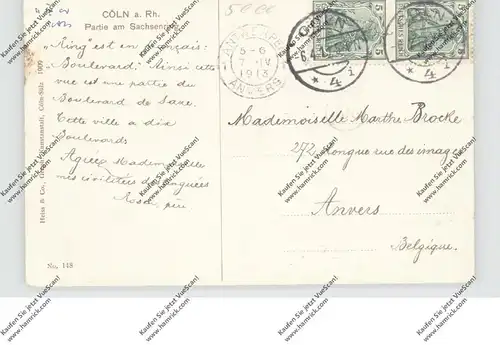 CÖLN a. Rh.
Partie am Sachsenring
"Ring" est en français:
Boulevard! Ainsi cette
vue est une partie du
Boulevard de Saxe.
Cette ville a dix
Boulevards.
Agréez Mademoiselle
mes civilités distinguées
Rosa
No. 148
ANTWERPEN
5-6
7 IV
1913
ANVERS
CÖLN
* 4 i
* 4 i
5 5
5 5
Mademoiselle Marthe Brocke
272, longue rue des images
Anvers
Belgique.
Kaufen Sie jetzt VueScan!
www.hamrick.com